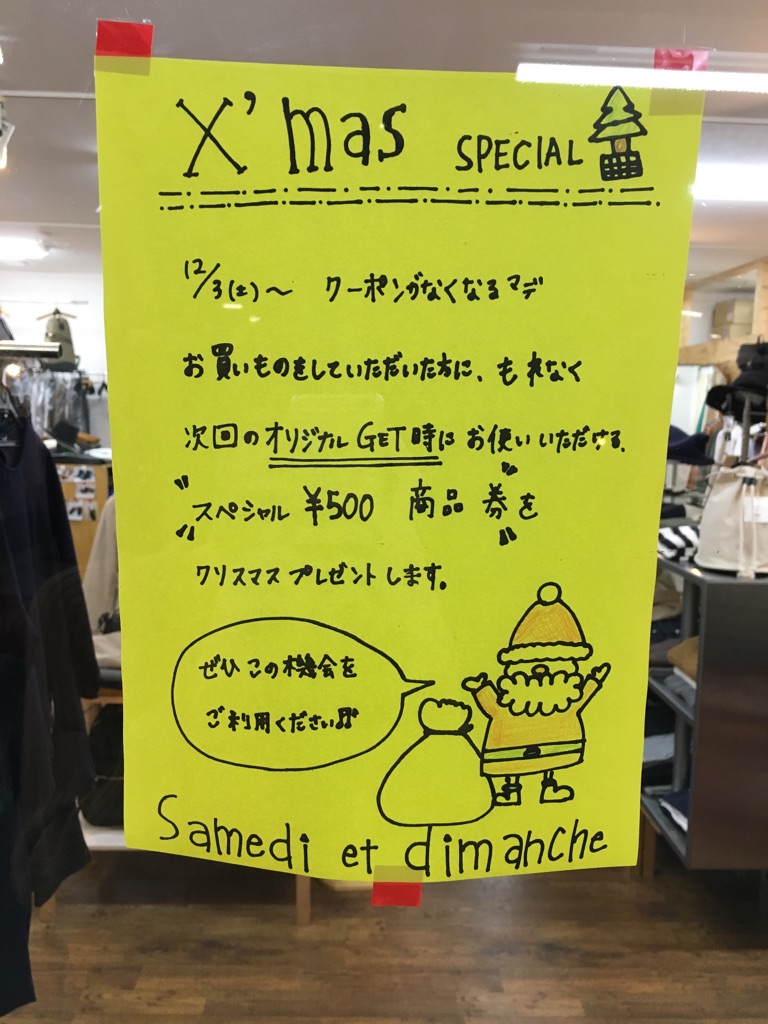 X'mas SPECIAL
12/3(土)〜 クーポンがなくなるマデ
お買いものをしていただいた方に、もれなく
次回のオリジナルGET時にお使いいただける、
"スペシャル ¥500 商品券"を
クリスマスプレゼントします。
ぜひこの機会を
ご利用ください♫
Samedi et dimanche